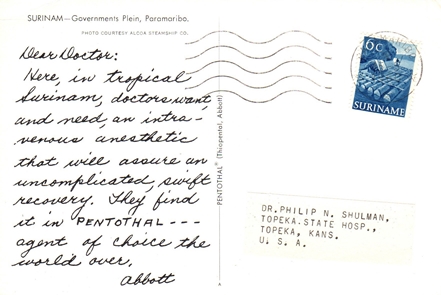 SURINAM—Governments Plein, Paramaribo.
PHOTO COURTESY ALCOA STEAMSHIP CO.
Dear Doctor:
Here, in tropical
Surinam, doctors want,
and need, an intra-
venous anesthetic
that will assure an
uncomplicated, swift
recovery. They find
it in PENTOTHAL ---
agent of choice the
world over.
Abbott
PENTOTHAL® (Thiopental, Abbott)
6c
SURINAME
DR. PHILIP N. SHULMAN,
TOPEKA.STATE HOSP.,
TOPEKA, KANS.
U. S. A.